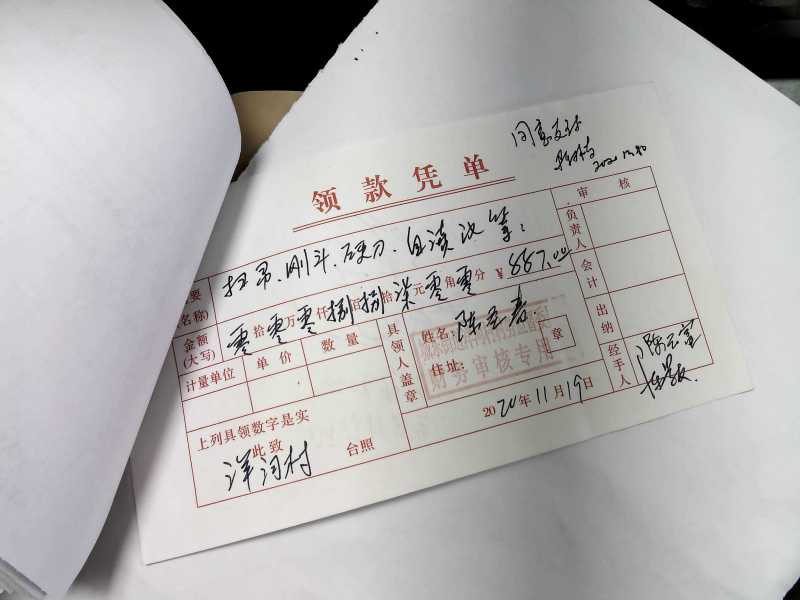 同意支付
2020.12.10
领款凭单
审核
要 扫帚、刚斗、砍刀、自
名称)
负责人
金额(大写) 零拾零万零仟捌佰捌拾柒元零角零分 ¥887.00
会计
计量单位 单价 数量
具领人盖章
姓名: 陈
住址: 章
财务审核专用
出纳
经手人
上列具领数字是实
此致
洋河村 台照
2020年11月19日